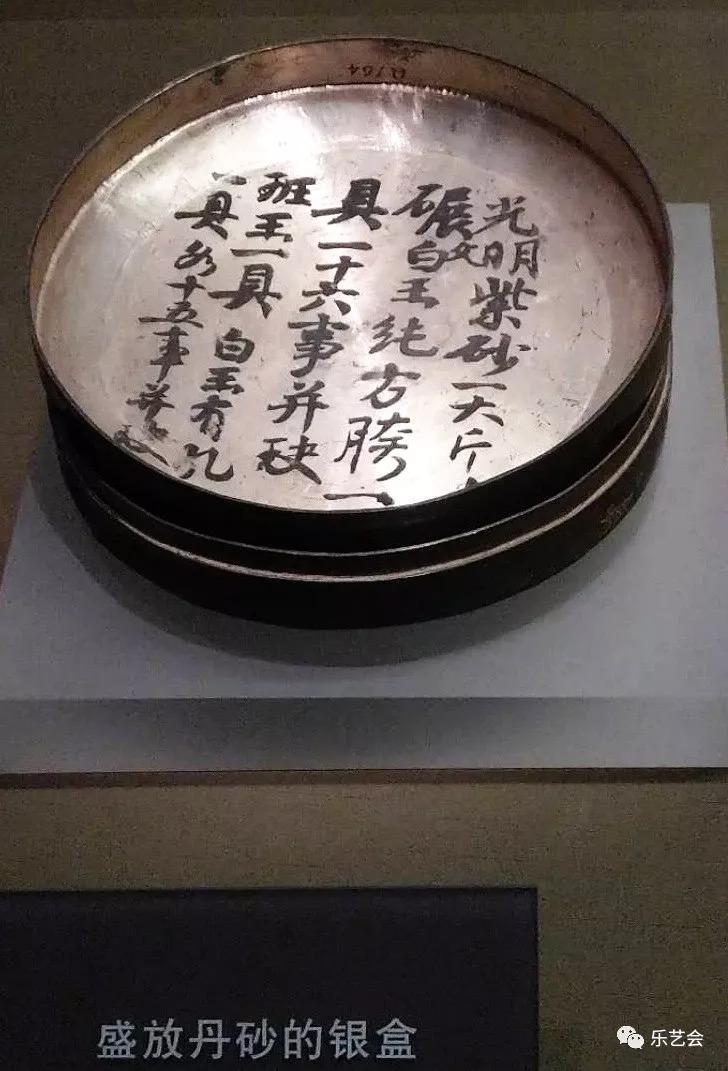 光明紫砂一大斤
碾文白玉纯方胯一
具一十六事并玦
斑玉一具 白玉有孔
一具各十五事并
盛放丹砂的银盒
乐艺会